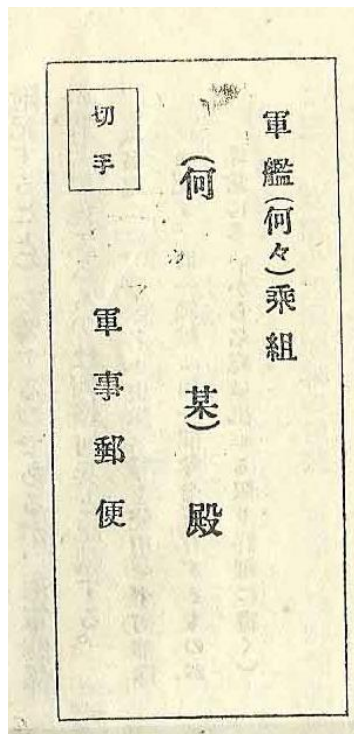 軍艦(何々)乘組
(何某)殿
切手
軍事郵便